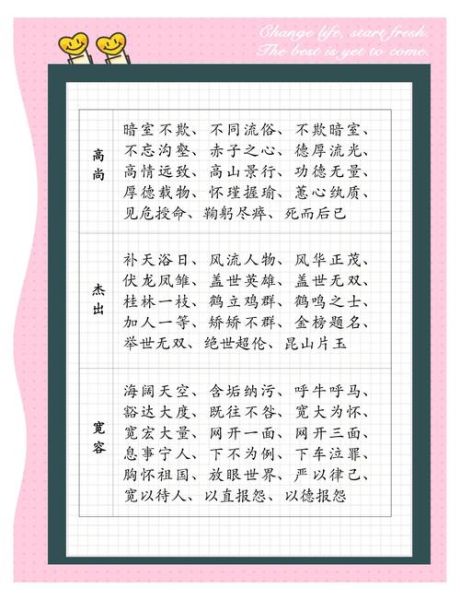 Change life, start fresh.
The best is yet to come.
高尚
暗室不欺、不同流俗、不欺暗室、
不忘沟壑、赤子之心、德厚流光、
高情远致、高山景行、功德无量、
厚德载物、怀瑾握瑜、蕙心纨质、
见危授命、鞠躬尽瘁、死而后已
杰出
补天浴日、风流人物、风华正茂、
伏龙凤雏、盖世英雄、盖世无双、
桂林一枝、鹤立鸡群、鹤鸣之士、
加人一等、矫矫不群、金榜题名、
举世无双、绝世超伦、昆山片玉
宽容
海阔天空、含垢纳污、呼牛呼马、
豁达大度、既往不咎、宽大为怀、
宽宏大量、网开一面、网开三面、
息事宁人、下不为例、下车泣罪、
胸怀祖国、放眼世界、严以律己、
宽以待人、以直报怨、以德报怨